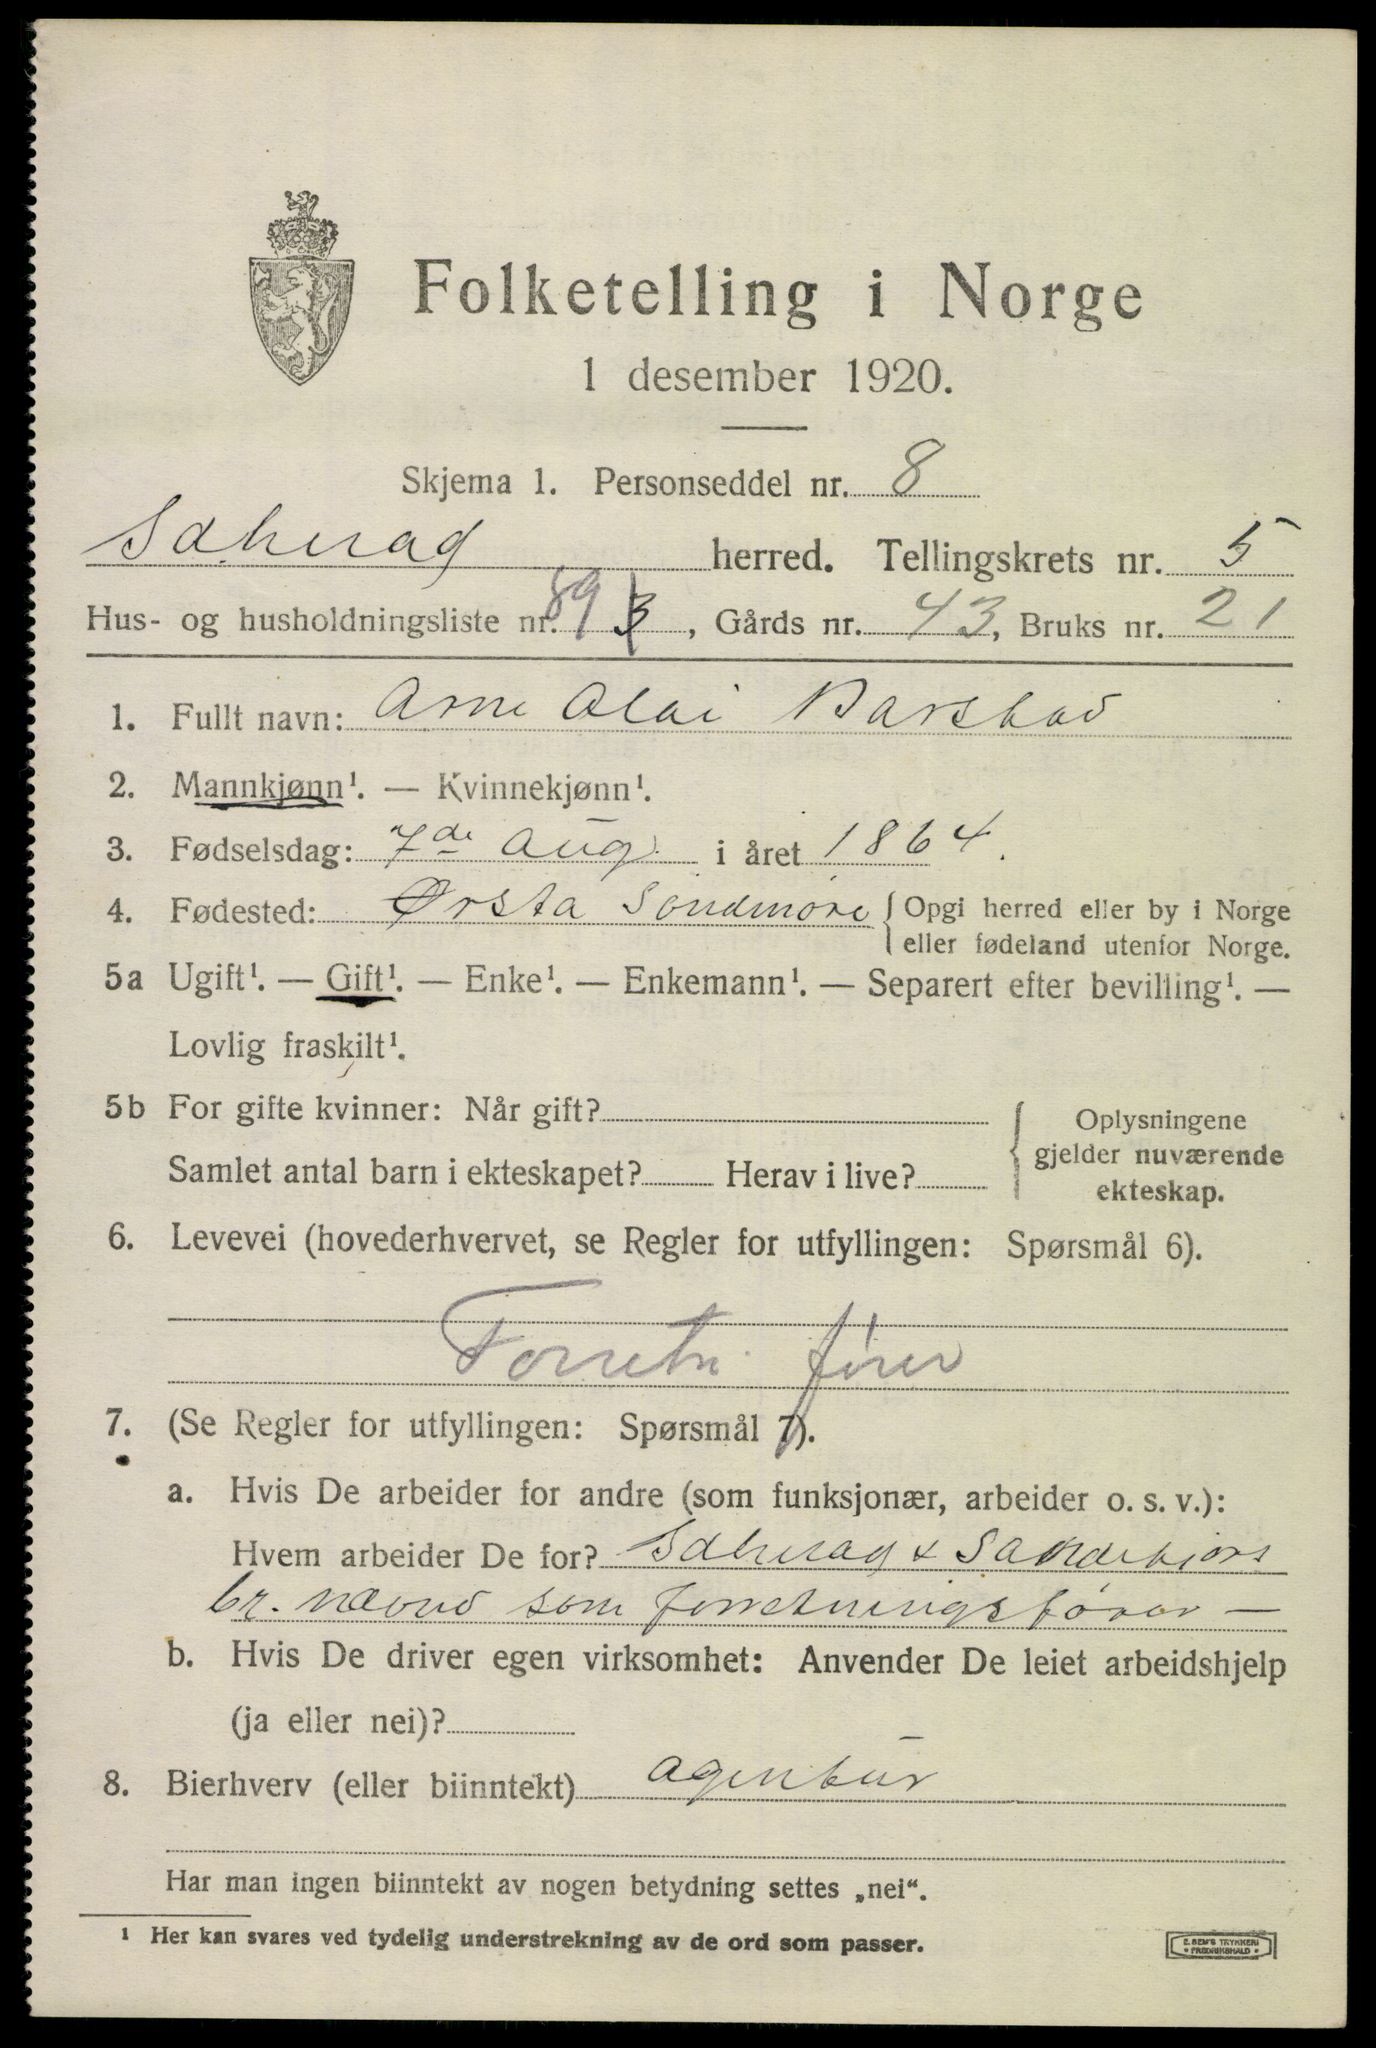 Folketelling i Norge
1 desember 1920.
Skjema 1. Personseddel nr. 8
Sdherad herred. Tellingskrets nr. 5
Hus- og husholdningsliste nr. 89 3, Gårds nr. 43, Bruks nr. 21
1. Fullt navn: Arne Olai Barstad
2. Mannkjønn¹. — Kvinnekjønn¹.
3. Fødselsdag: 7de Aug. i året 1864.
4. Fødested: Ørsta Sondmøre { Opgi herred eller by i Norge
eller fødeland utenfor Norge.
5a Ugift¹. — Gift¹. — Enke¹. — Enkemann¹. — Separert efter bevilling¹. —
Lovlig fraskilt¹.
5b For gifte kvinner: Når gift? Oplysningene
gjelder nuværende
Samlet antal barn i ekteskapet? Herav i live? ekteskap.
6. Levevei (hovederhvervet, se Regler for utfyllingen: Spørsmål 6).
Forretn. fører
7. (Se Regler for utfyllingen: Spørsmål 7).
a. Hvis De arbeider for andre (som funksjonær, arbeider o. s. v.):
Hvem arbeider De for? Sdherad &
som forretningsfører —
b. Hvis De driver egen virksomhet: Anvender De leiet arbeidshjelp
(ja eller nei)?
8. Bierhverv (eller biinntekt) agentur
Har man ingen biinntekt av nogen betydning settes „nei“.
¹ Her kan svares ved tydelig understrekning av de ord som passer.
E. SEM'S TRYKKERI
• FREDRIKSHALD •